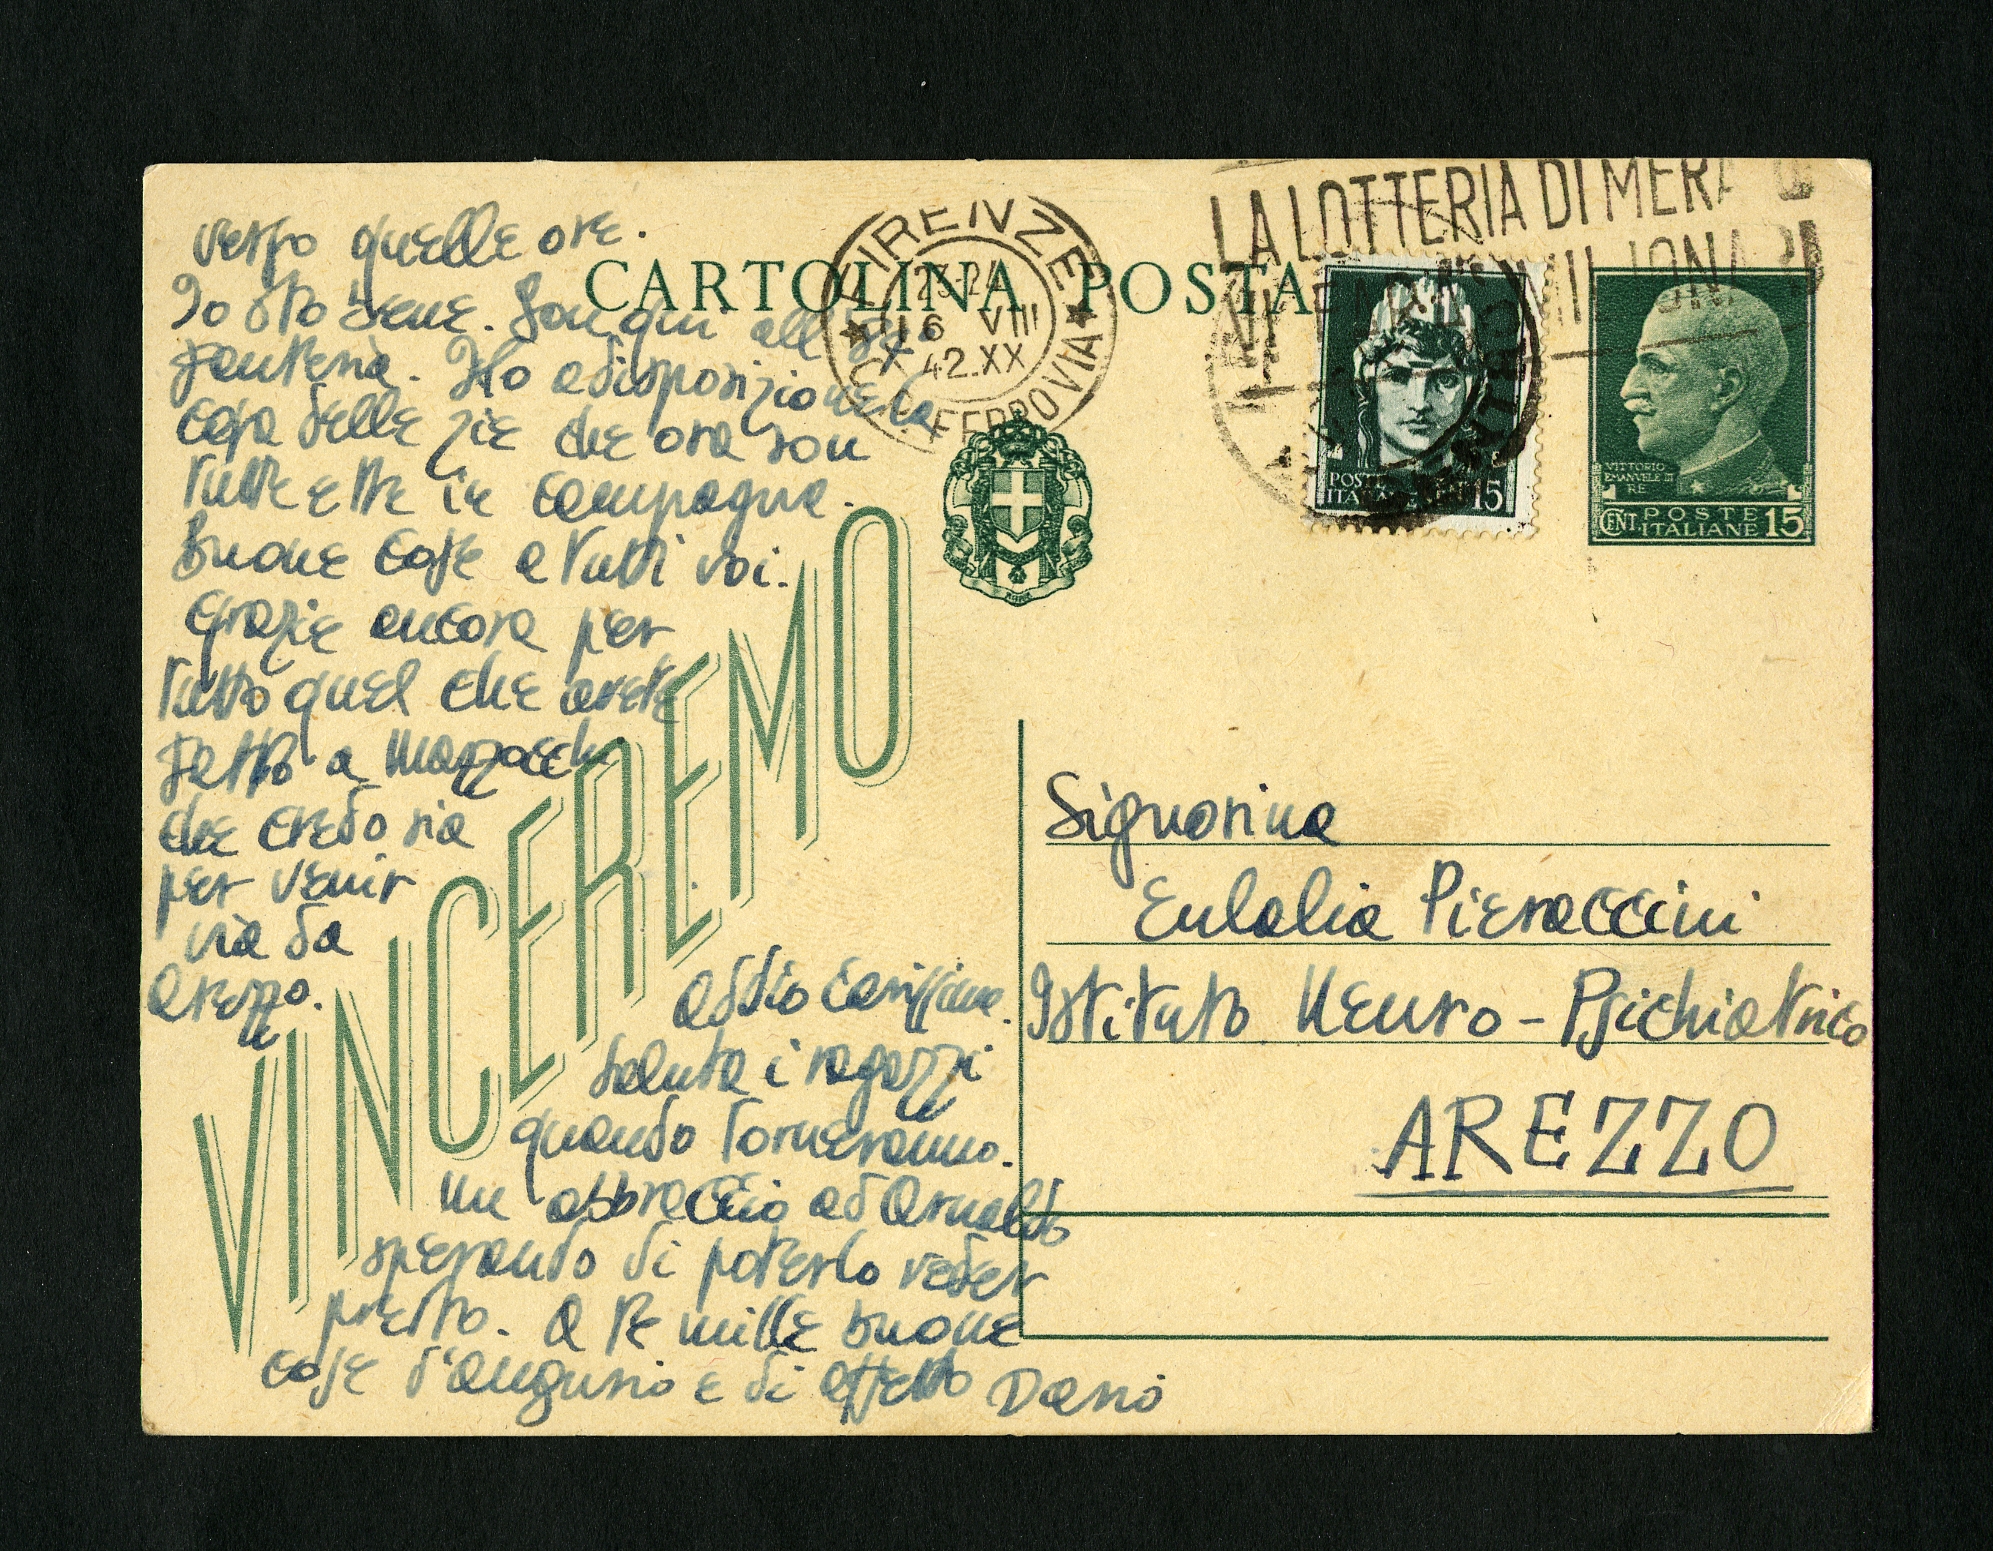 verso quelle ore.
Io sto bene. Son qui all'
fanteria. Ho a disposizione la
casa delle zie che ora son
tutte e tre in campagna.
Buone cose a tutti voi.
Grazie ancora per
tutto quel che avete
fatto a Mazzocchi
che credo sia
per venir
via da
Arezzo.
Addio carissima.
Saluta i ragazzi
quando torneranno.
Un abbraccio ad Arnaldo
sperando di poterlo veder
presto. A te mille buone
cose d'augurio e di affetto Dario
CARTOLINA POSTA
FIRENZE
23-24
16 VIII
42.XX
FERROVIA
LA LOTTERIA DI MERA
POSTE
ITALIANE
15
VITTORIO
EMANUELE III
RE
CENT. POSTE
ITALIANE 15
VINCEREMO
Signorina
Eulalia Pieraccini
Istituto Neuro-Psichiatrico
AREZZO